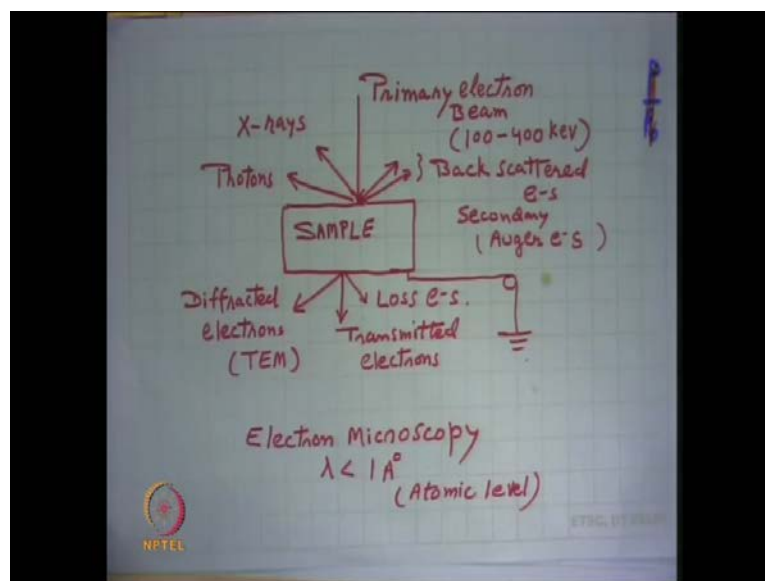 Primary electron
Beam
(100-400 keV)
X-rays
Photons
} Back scattered
e-s
Secondary
(Auger e-s)
SAMPLE
Diffracted
electrons
(TEM)
Loss e-s.
Transmitted
electrons
Electron Microscopy
λ < 1 A°
(Atomic level)
NPTEL